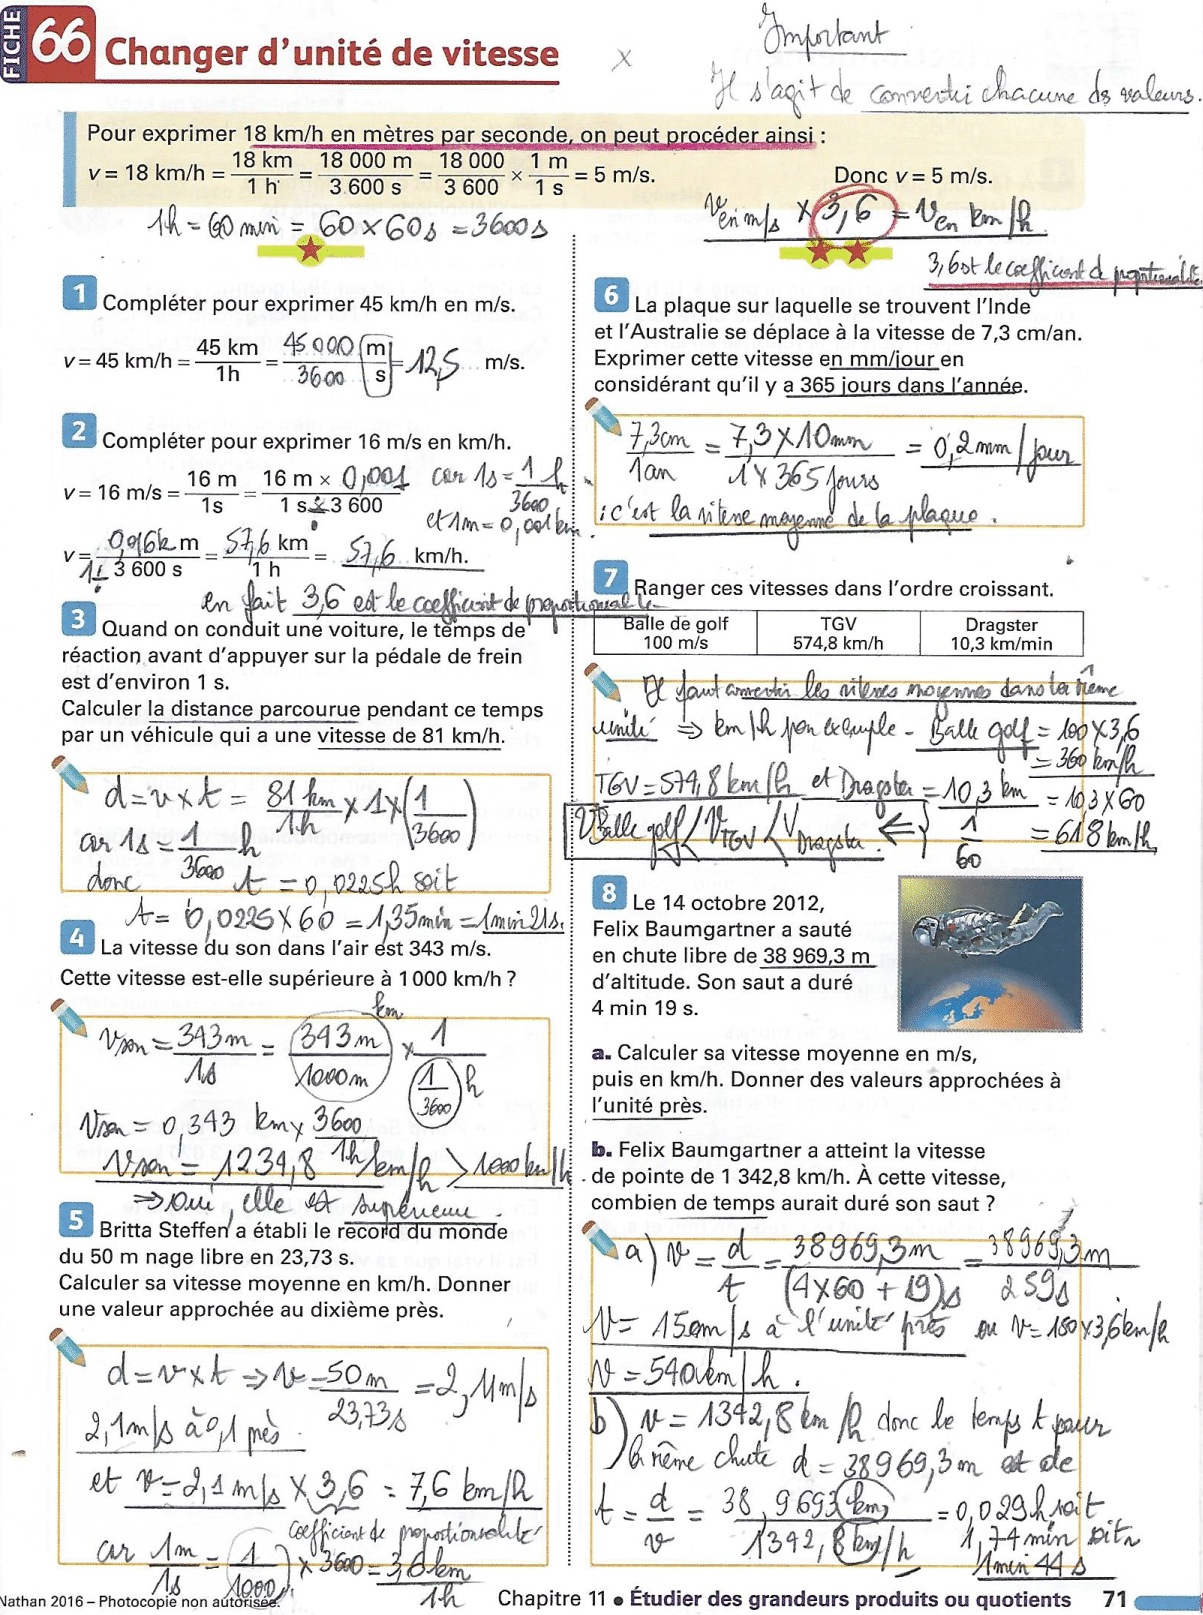 FICHE 66 Changer d'unité de vitesse
x
Important
Il s'agit de convertir chacune des valeurs.
Pour exprimer 18 km/h en mètres par seconde, on peut procéder ainsi :
v = 18 km/h = 18 km / 1 h = 18 000 m / 3 600 s = 18 000 / 3 600 × 1 m / 1 s = 5 m/s. Donc v = 5 m/s.
1h = 60 min = 60 x 60 s = 3600 s
v en m/s x 3,6 = v en km/h
3,6 est le coefficient de proportionnalité
1 Compléter pour exprimer 45 km/h en m/s.
v = 45 km/h = 45 km / 1h = 45 000 m / 3600 s = 12,5 m/s.
2 Compléter pour exprimer 16 m/s en km/h.
v = 16 m/s = 16 m / 1s = 16 m × 0,001 / 1 s × 3 600 car 1s = 1 / 3600 h
et 1m = 0,001 km.
v = 0,016 k m / 1÷ 3 600 s = 57,6 km / 1 h = 57,6 km/h.
en fait 3,6 est le coefficient de proportionnalité
3 Quand on conduit une voiture, le temps de
réaction avant d'appuyer sur la pédale de frein
est d'environ 1 s.
Calculer la distance parcourue pendant ce temps
par un véhicule qui a une vitesse de 81 km/h.
d = v x t = 81 km / 1 h x 1 x (1 / 3600)
car 1s = 1 / 3600 h
donc t = 0,0225h soit
t = 0,0225 x 60 = 1,35 min = 1 min 21s.
4 La vitesse du son dans l'air est 343 m/s.
Cette vitesse est-elle supérieure à 1 000 km/h ?
Vson = 343 m / 1s = 343 m / 1000 m km x 1 / (1 / 3600) h
Vson = 0,343 km x 3600 / 1h
Vson = 1234,8 km/h > 1000 km/h
⇒ oui, elle est supérieure.
5 Britta Steffen a établi le record du monde
du 50 m nage libre en 23,73 s.
Calculer sa vitesse moyenne en km/h. Donner
une valeur approchée au dixième près.
d = v x t ⇒ v = 50 m / 23,73 s = 2,1 m/s
2,1 m/s à 0,1 près.
et v = 2,1 m/s x 3,6 = 7,6 km/h
coefficient de proportionnalité
car 1m / 1s = (1 / 1000) x 3600 = 3,6 km / 1h
6 La plaque sur laquelle se trouvent l'Inde
et l'Australie se déplace à la vitesse de 7,3 cm/an.
Exprimer cette vitesse en mm/jour en
considérant qu'il y a 365 jours dans l'année.
7,3 cm / 1 an = 7,3 x 10 mm / 1 x 365 jours = 0,2 mm / jour
: c'est la vitesse moyenne de la plaque.
7 Ranger ces vitesses dans l'ordre croissant.
Balle de golf TGV Dragster
100 m/s 574,8 km/h 10,3 km/min
Il faut convertir les vitesses moyennes dans la même
unité ⇒ km/h par exemple - Balle golf = 100 x 3,6
= 360 km/h
TGV = 574,8 km/h et Dragster = 10,3 km / (1 / 60) = 10,3 x 60
= 618 km/h
V Balle golf / V TGV / V Dragster. ⇐
8 Le 14 octobre 2012,
Felix Baumgartner a sauté
en chute libre de 38 969,3 m
d'altitude. Son saut a duré
4 min 19 s.
a. Calculer sa vitesse moyenne en m/s,
puis en km/h. Donner des valeurs approchées à
l'unité près.
b. Felix Baumgartner a atteint la vitesse
de pointe de 1 342,8 km/h. À cette vitesse,
combien de temps aurait duré son saut ?
a) v = d / t = 38 969,3 m / (4 x 60 + 19) s = 38 969,3 m / 259 s
v = 150 m/s à l'unité près ou v = 150 x 3,6 km/h
v = 540 km/h.
b) v = 1342,8 km/h donc le temps t pour
la même chute d = 38 969,3 m est de
t = d / v = 38,9693 km / 1342,8 km/h = 0,029 h soit
1,74 min soit
1 min 44 s
Nathan 2016 – Photocopie non autorisée. Chapitre 11 • Étudier des grandeurs produits ou quotients 71